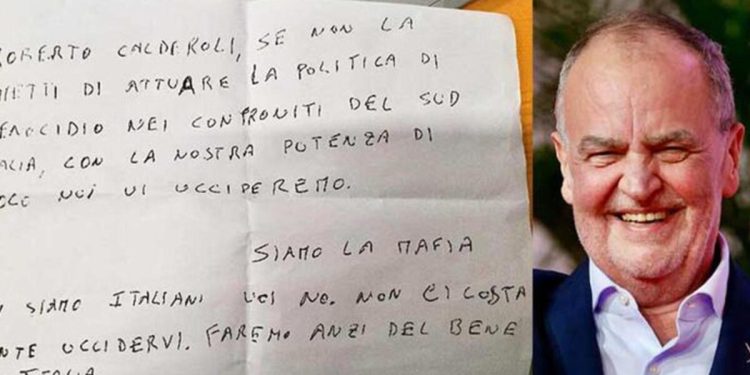 OBERTO CALDEROLI, SE NON LA
METTI DI ATTUARE LA POLITICA DI
ENOCIDIO NEI CONFRONITI DEL SUD
ALIA, CON LA NOSTRA POTENZA DI
OCO NOI VI UCCIDEREMO.
SIAMO LA MAFIA
SIAMO ITALIANI VOI NO. NON CI COSTA
NTE UCCIDERVI. FAREMO ANZI DEL BENE
ITALIA